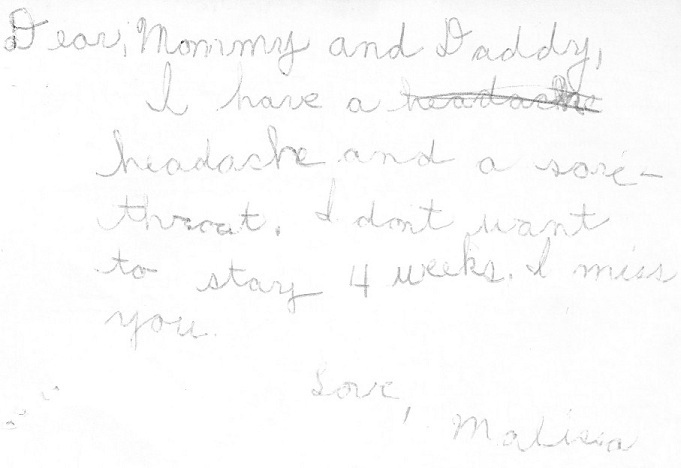 Dear, Mommy and Daddy,
I have a headache
headache and a sore-
throat. I dont want
to stay 4 weeks. I miss
you.
Love,
Malissa